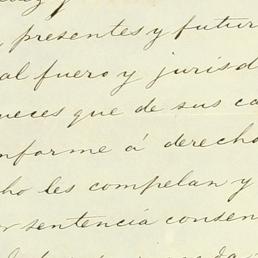 , presentes y futur
al fuero y jurisd
ueces que de sus ca
nforme á derecho
cho les compelan y
or sentencia consen